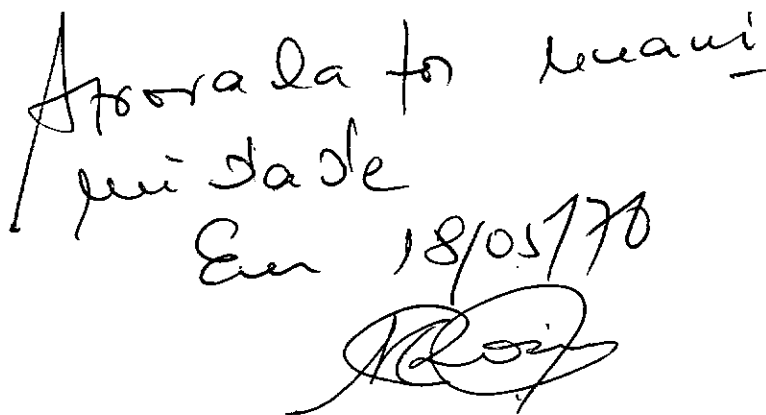 Aprovada por unani
midade
Em 18/05/70